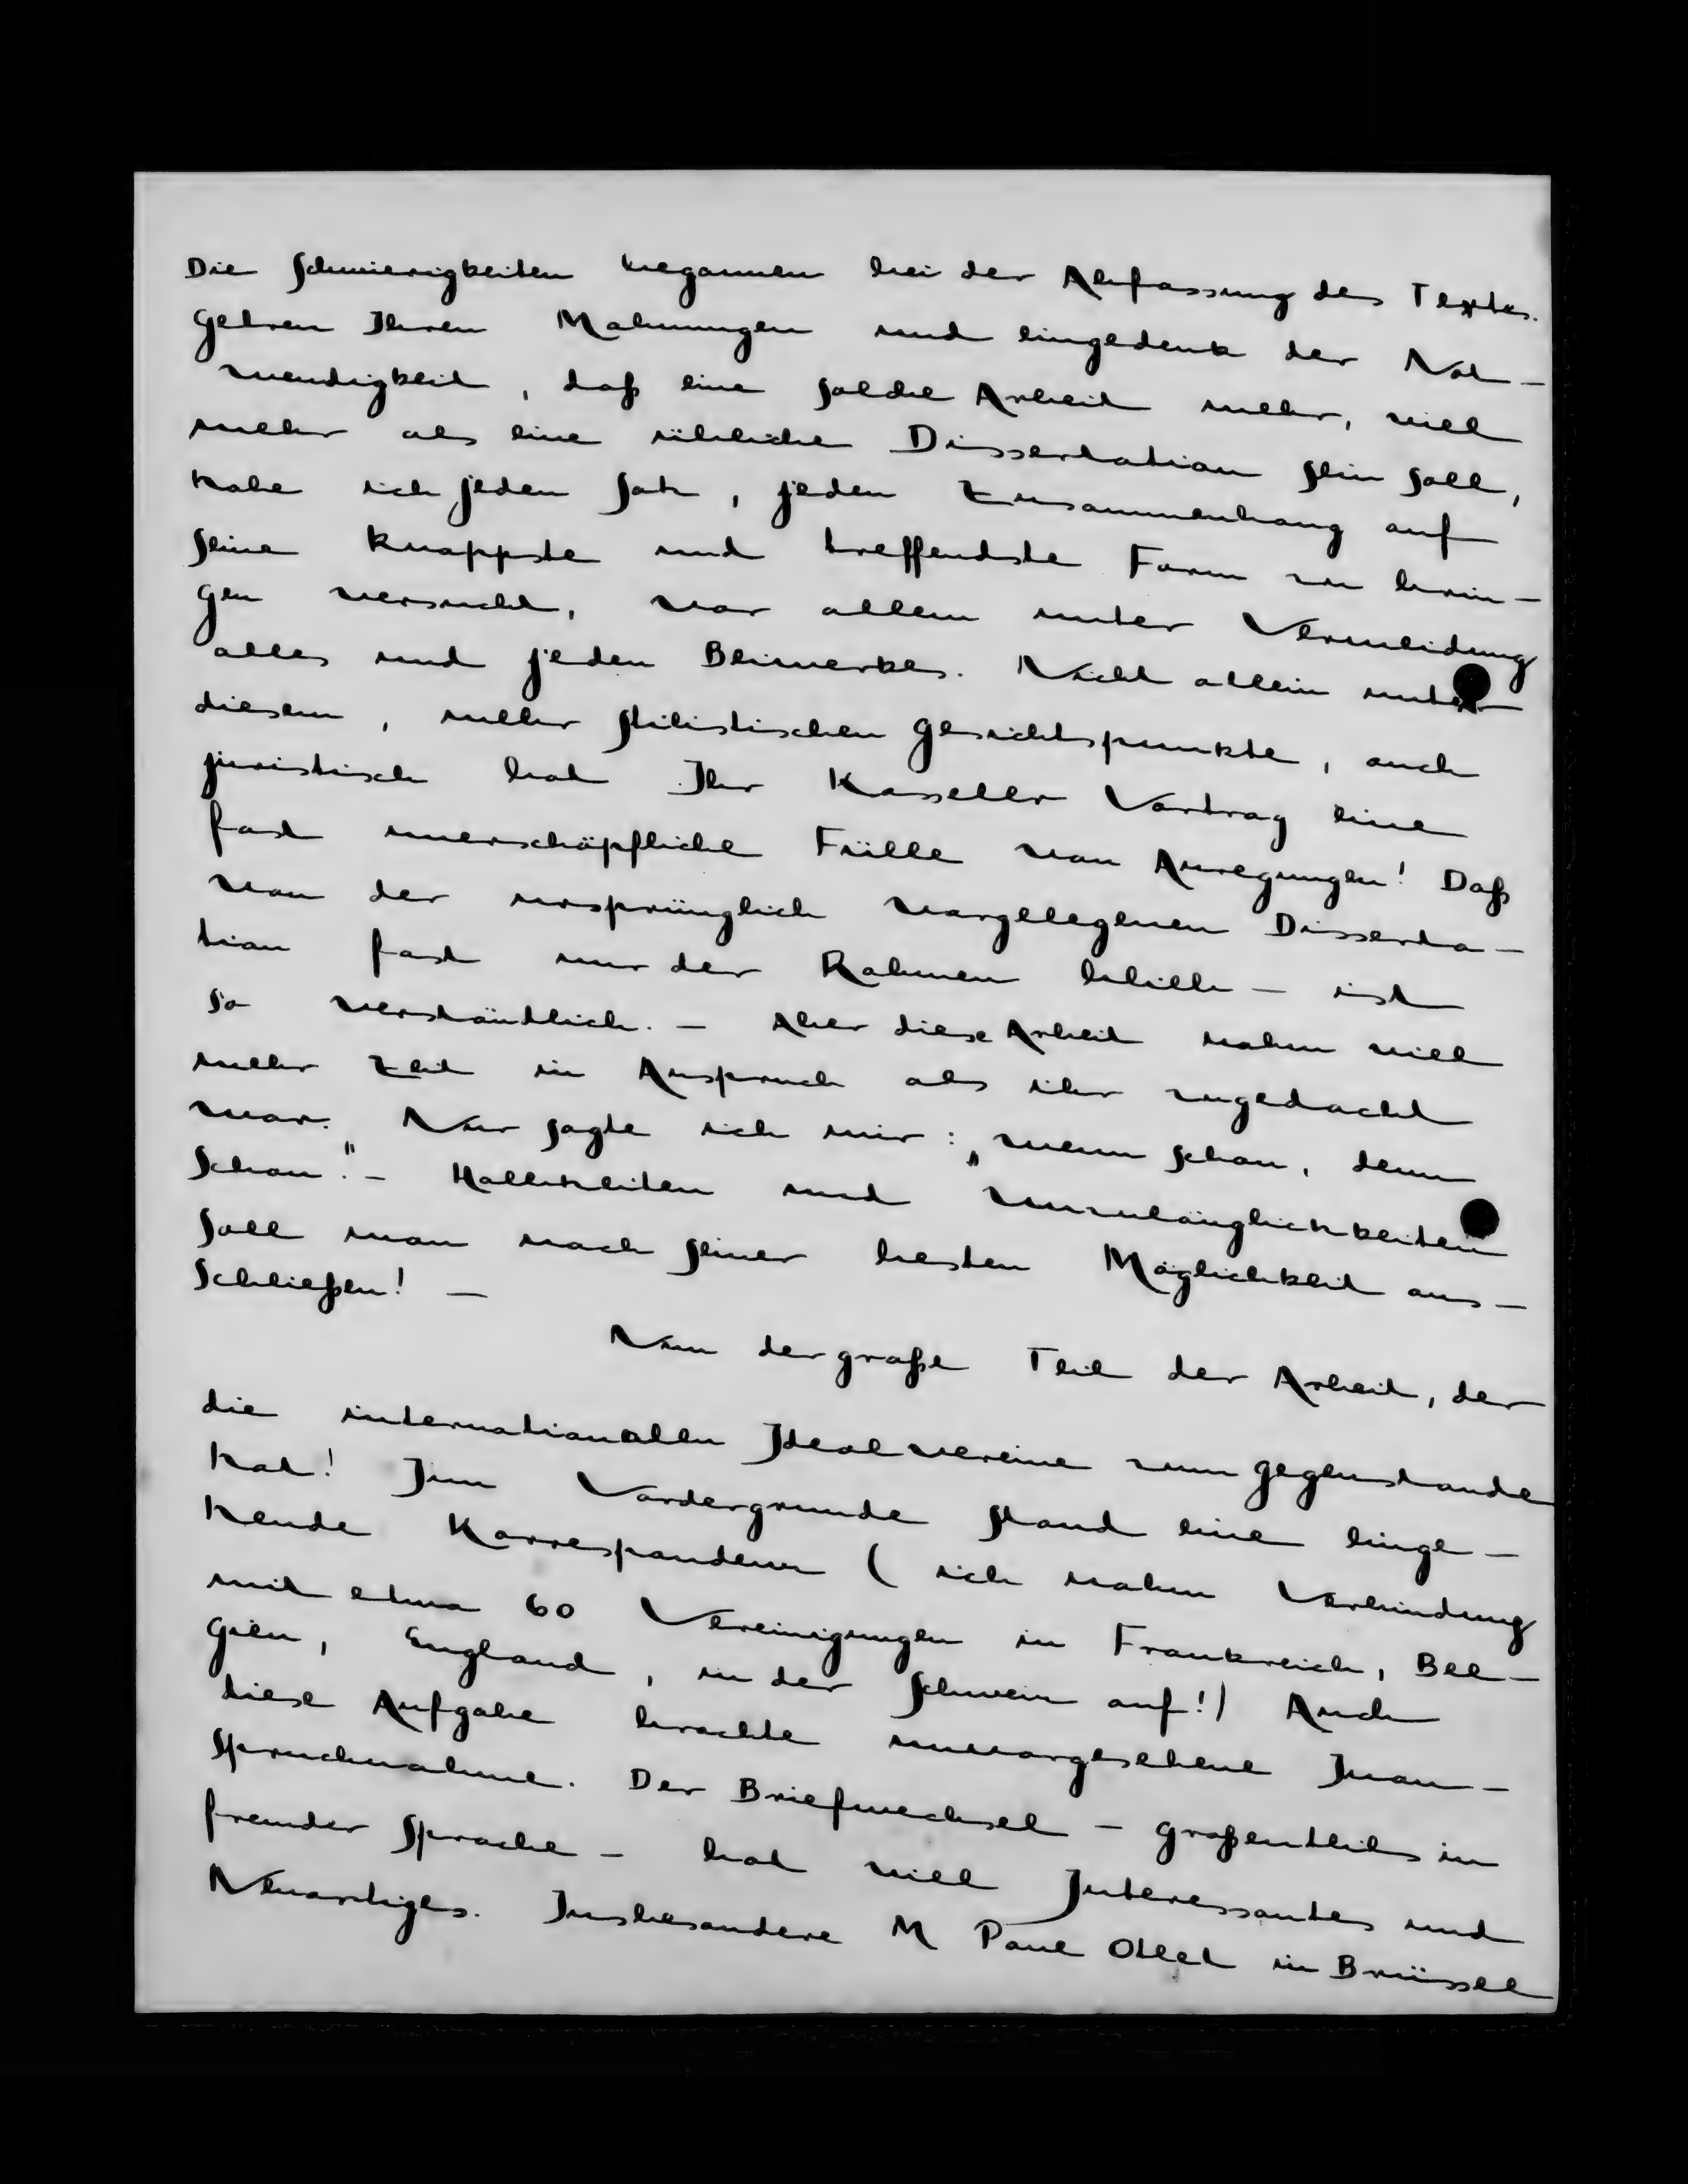 Die Schwierigkeiten begannen bei der Abfassung des Textes.
Getreu Ihren Mahnungen und eingedenk der Not-
wendigkeit, daß eine solche Arbeit mehr, viel
mehr als eine übliche Dissertation sein soll,
habe ich jeden Satz, jeden Zusammenhang auf
seine knappste und treffendste Form zu brin-
gen versucht, vor allem unter Vermeidung
alles und jeden Beiwerkes. Nicht allein unter
diesem, mehr stilistischen Gesichtspunkte, auch
juristisch bot Ihr Kasseler Vortrag eine
fast unerschöpfliche Fülle von Anregungen! Daß
von der ursprünglich vorgelegenen Disserta-
tion fast nur der Rahmen blieb - ist
so verständlich. - Aber diese Arbeit nahm viel
mehr Zeit in Anspruch als ihr zugedacht
war. Nur sagte ich mir: „wenn schon, denn
schon." - Halbheiten und Unzulänglichkeiten
soll man nach seiner besten Möglichkeit aus-
schließen! -
Nun der große Teil der Arbeit, der
die internationalen Idealvereine zum Gegenstande
hat! Im Vordergrunde stand eine einge-
hende Korrespondenz (ich nahm Verbindung
mit etwa 60 Vereinigungen in Frankreich, Bel-
gien, England, in der Schweiz auf!) Auch
diese Aufgabe brachte unvorgesehene Inan-
spruchnahme. Der Briefwechsel - großenteils in
fremder Sprache - bot viel Interessantes und
Neuartiges. Insbesondere M Paul Otlet in Brüssel